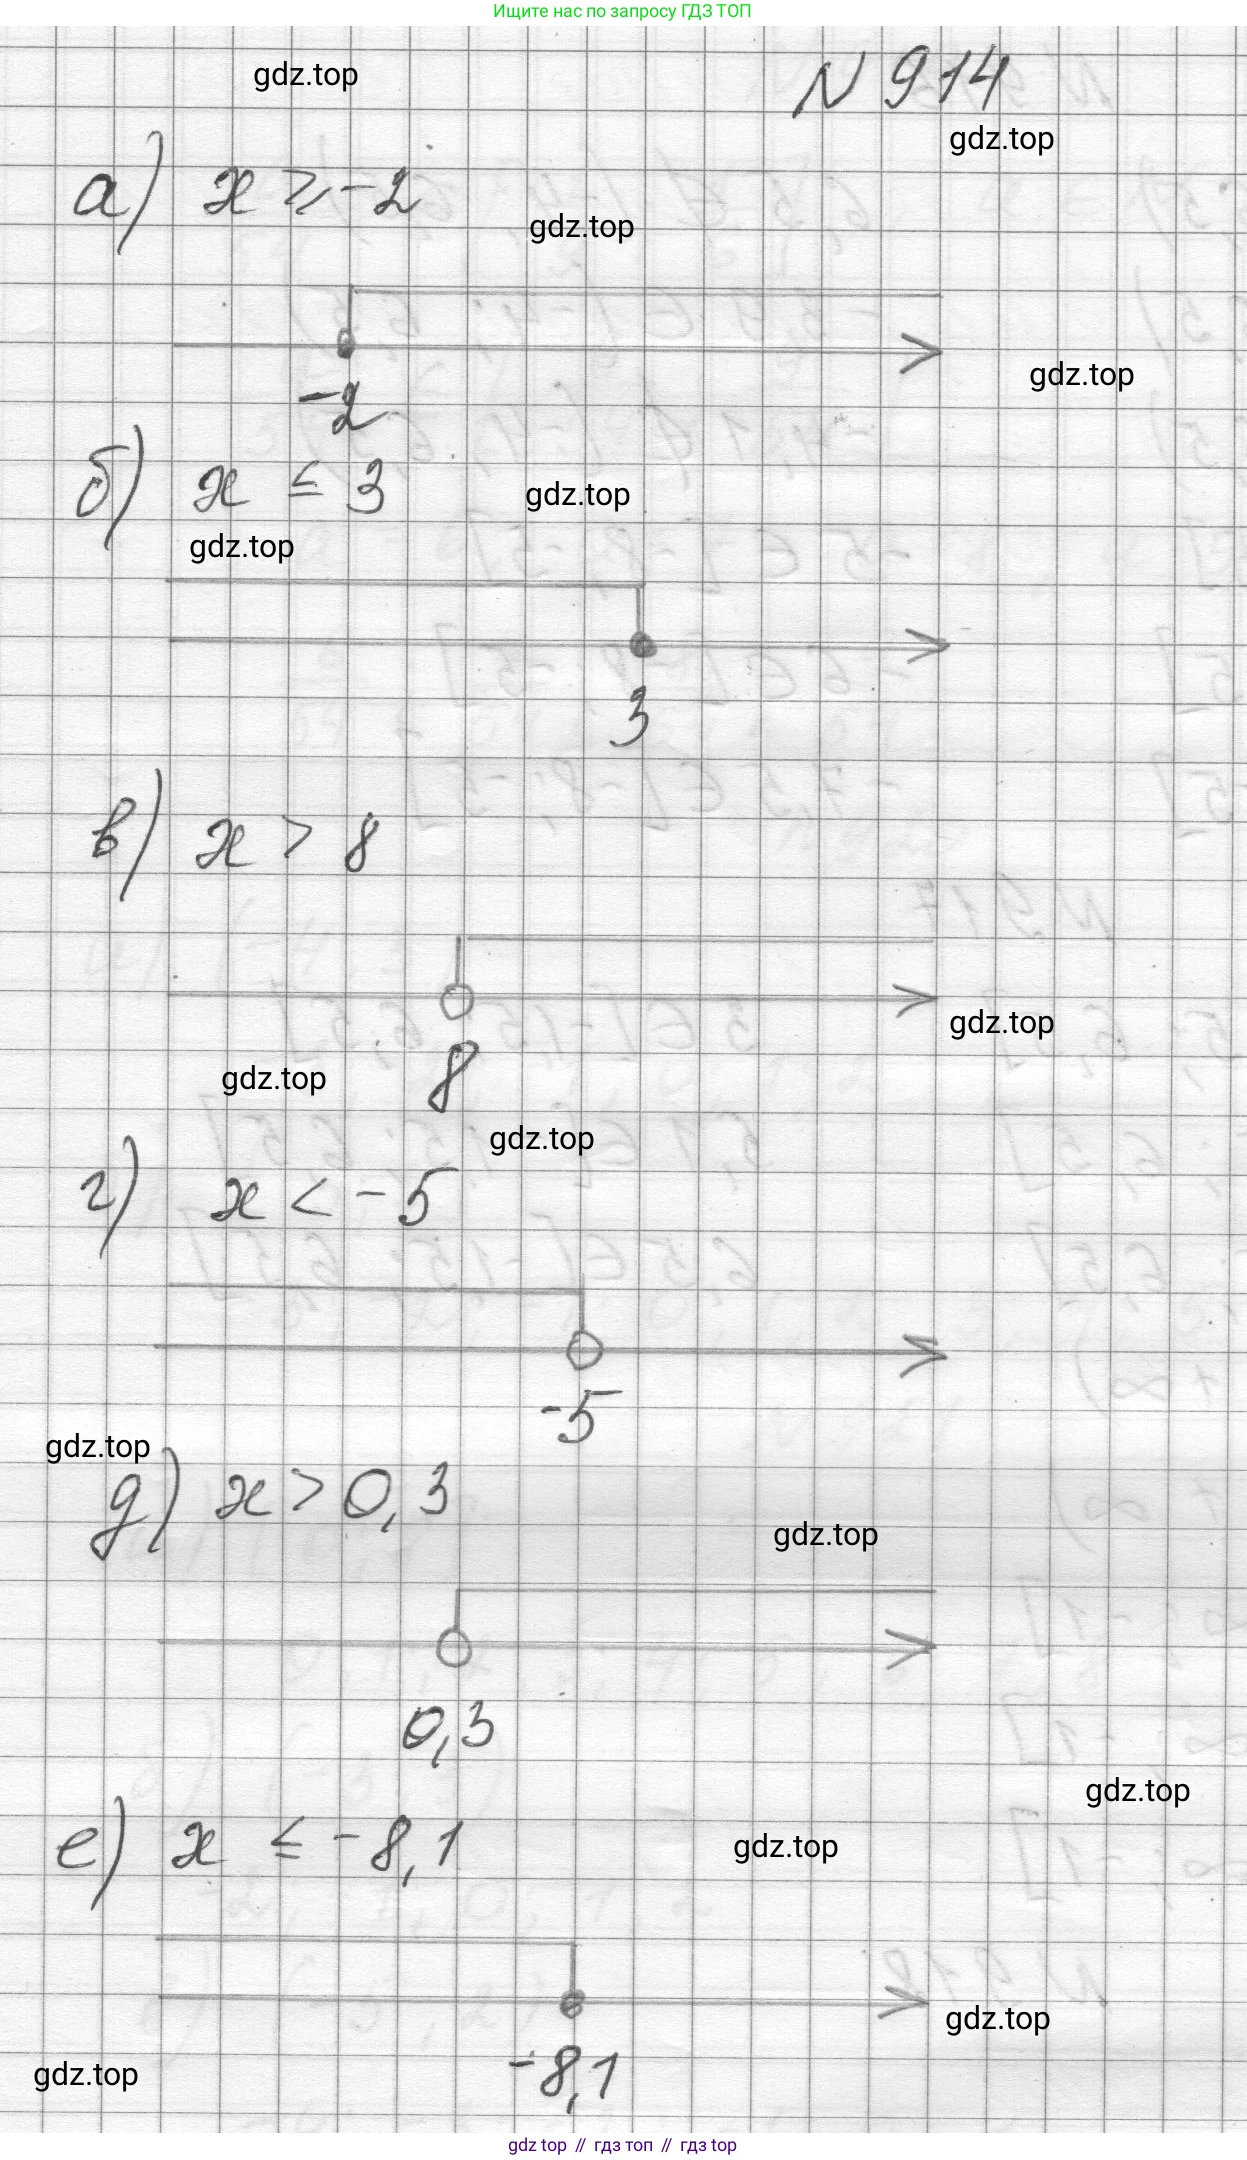 Ищите нас по запросу ГДЗ ТОП
gdz.top
N 914
gdz.top
а) x ⩾ -2
gdz.top
gdz.top
-2
б) x ≤ 3
gdz.top
gdz.top
3
в) x > 8
gdz.top
8
gdz.top
gdz.top
г) x < -5
-5
gdz.top
д) x > 0,3
gdz.top
0,3
gdz.top
е) x ≤ -8,1
gdz.top
gdz.top
-8,1
gdz.top
gdz top // гдз топ // gdz top